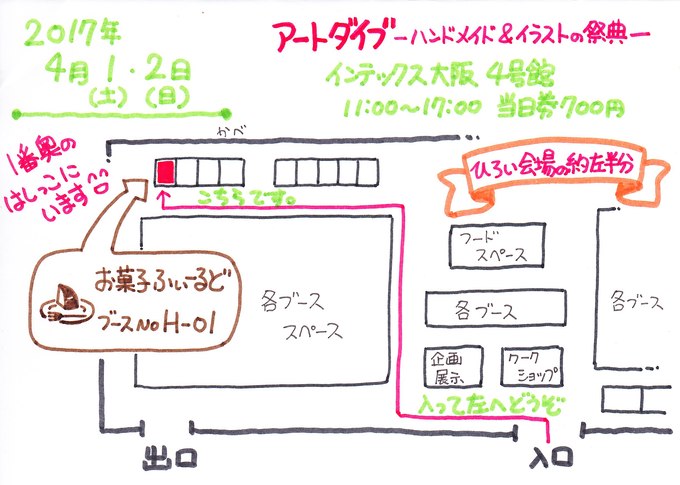 2017年
4月1・2日
(土)(日)
アートダイブ－ハンドメイド＆イラストの祭典－
インテックス大阪 4号館
11:00〜17:00 当日券700円
かべ
1番奥の
はしっこに
います
こちらです。
ひろい会場の約左半分
お菓子ふぃーるど
ブースNoH-01
各ブース
スペース
フード
スペース
各ブース
各ブース
企画
展示
ワーク
ショップ
入って左へどうぞ
出口
入口